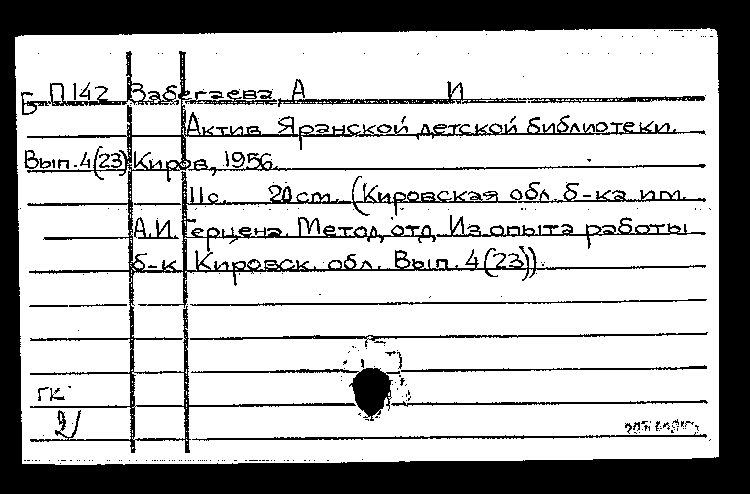 Б П142 Забегаева, А И
Актив Яранской детской библиотеки.
Вып.4(23) Киров, 1956.
11с. 20см. (Кировская обл. б-ка им.
А.И. Герцена. Метод. отд. Из опыта работы
б-к Кировск. обл. Вып. 4(23)).
ГК